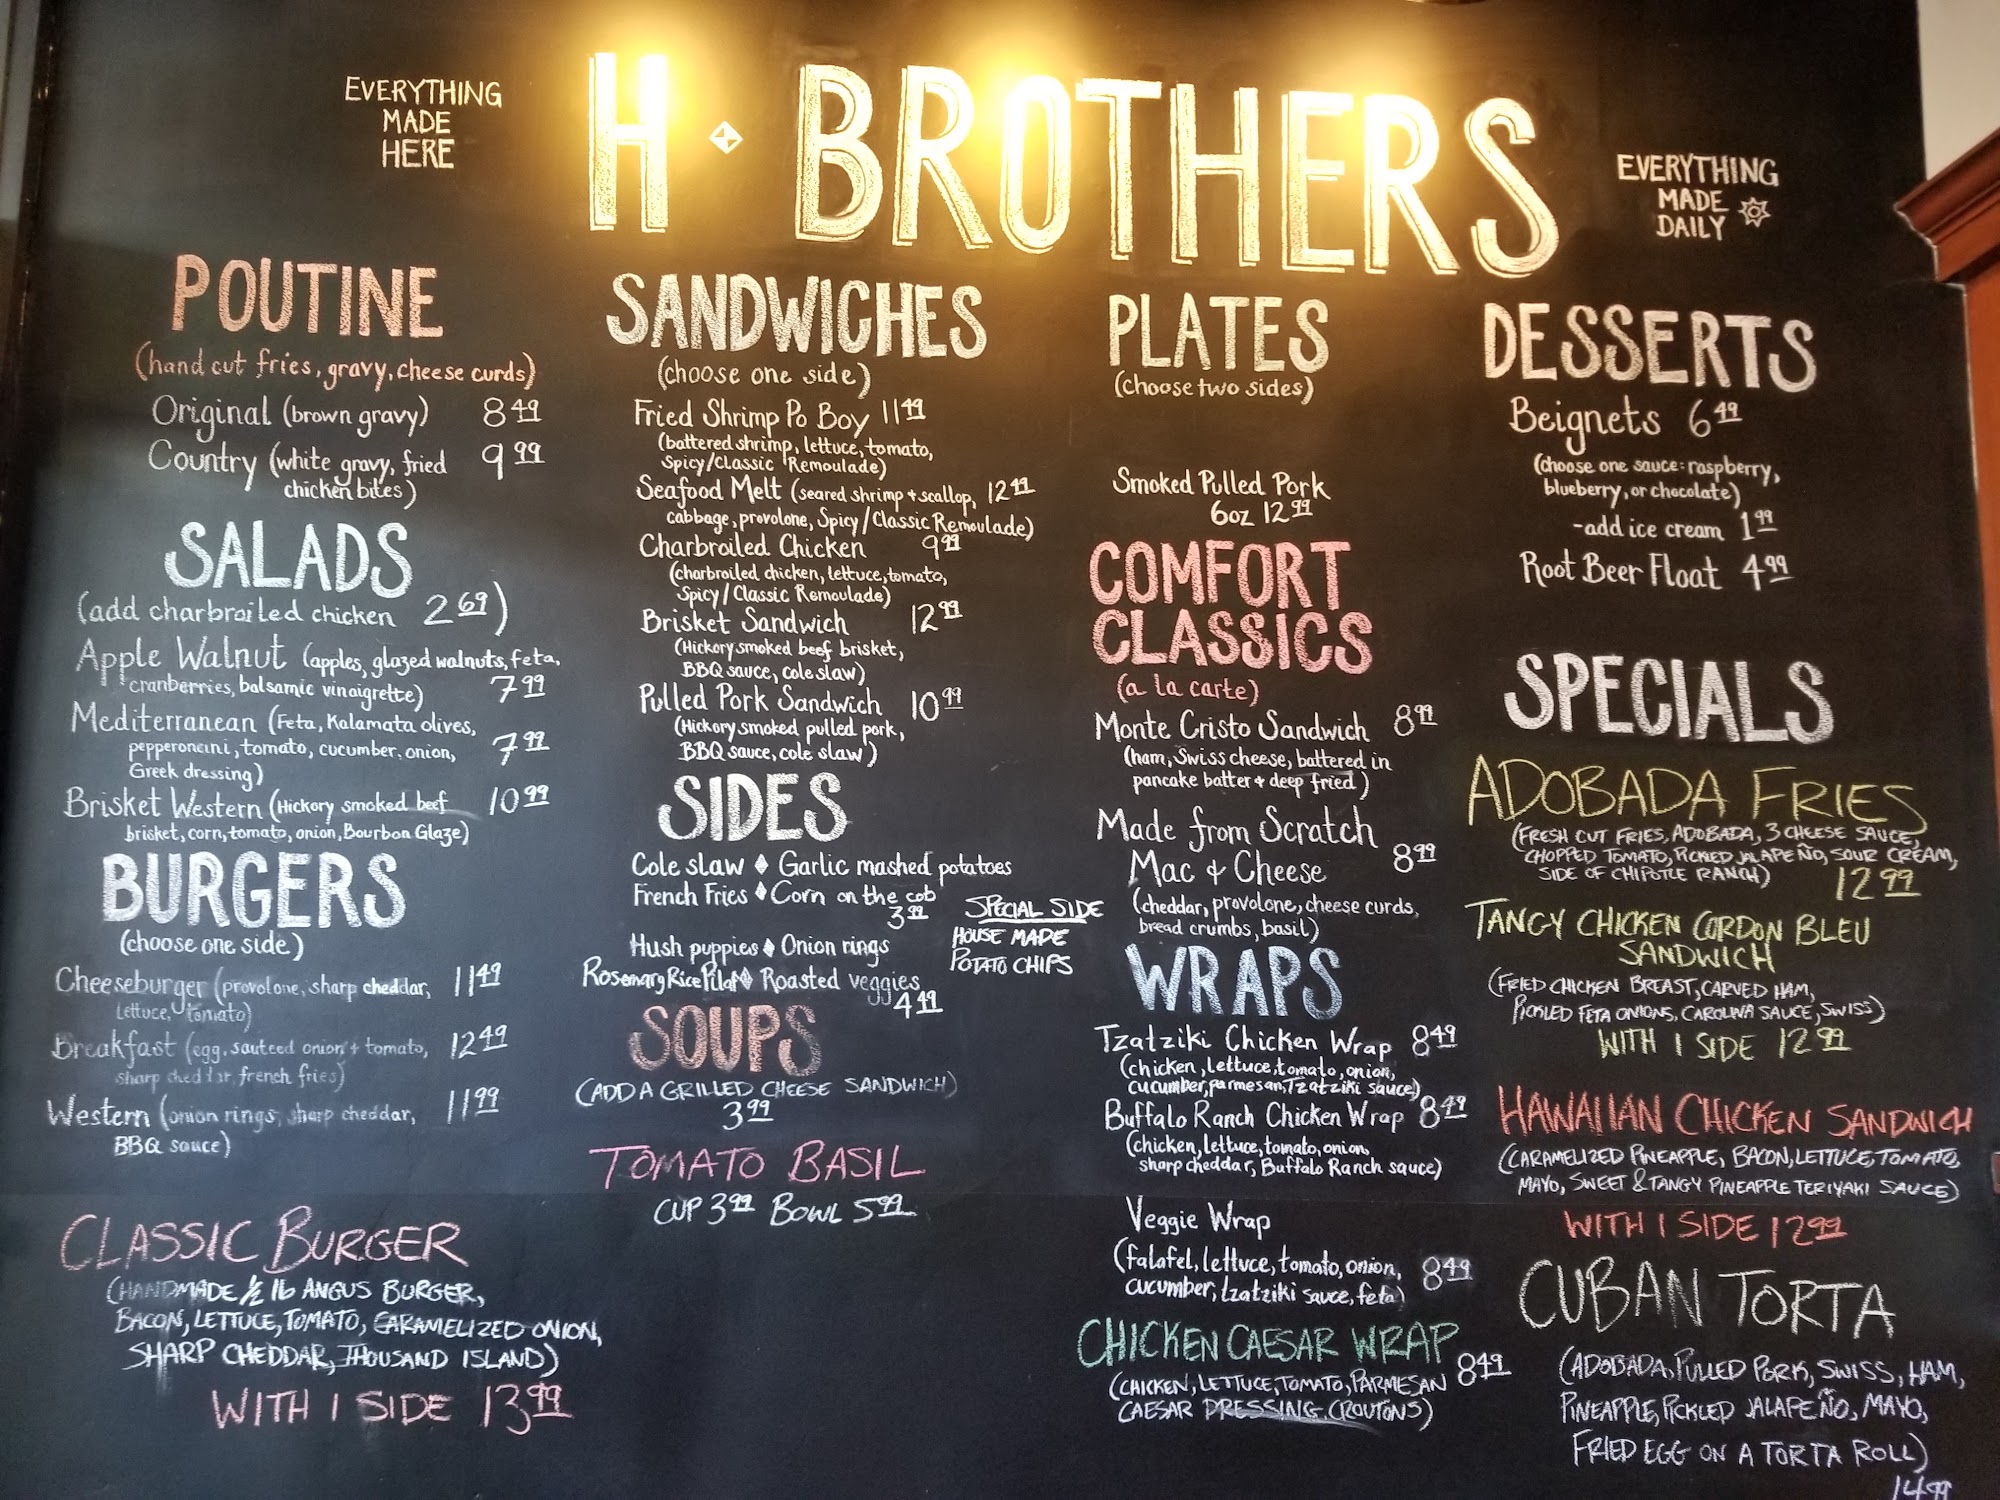 EVERYTHING
MADE
HERE
H BROTHERS
EVERYTHING
MADE
DAILY
POUTINE
(hand cut fries, gravy, cheese curds)
Original (brown gravy) 8 49
Country (white gravy, fried 9 99
chicken bites)
SALADS
(add charbroiled chicken 2 69)
Apple Walnut (apples, glazed walnuts, feta,
cranberries, balsamic vinaigrette) 7 99
Mediterranean (Feta, Kalamata olives,
pepperoncini, tomato, cucumber, onion, 7 99
Greek dressing)
Brisket Western (Hickory smoked beef 10 99
brisket, corn, tomato, onion, Bourbon Glaze)
BURGERS
(choose one side)
Cheeseburger (provolone, sharp cheddar, 11 49
lettuce, tomato)
Breakfast (egg, sauteed onion + tomato, 12 49
sharp cheddar, french fries)
Western (onion rings, sharp cheddar, 11 99
BBQ sauce)
CLASSIC BURGER
(HANDMADE 1/2 lb ANGUS BURGER,
BACON, LETTUCE, TOMATO, CARAMELIZED ONION,
SHARP CHEDDAR, THOUSAND ISLAND)
WITH 1 SIDE 13 99
SANDWICHES
(choose one side)
Fried Shrimp Po Boy 11 49
(battered shrimp, lettuce, tomato,
Spicy/Classic Remoulade)
Seafood Melt (seared shrimp + scallop, 12 49
cabbage, provolone, Spicy/Classic Remoulade)
Charbroiled Chicken 9 99
(charbroiled chicken, lettuce, tomato,
Spicy/Classic Remoulade)
Brisket Sandwich 12 99
(Hickory smoked beef brisket,
BBQ sauce, cole slaw)
Pulled Pork Sandwich 10 99
(Hickory smoked pulled pork,
BBQ sauce, cole slaw)
SIDES
Cole slaw ♦ Garlic mashed potatoes
French Fries ♦ Corn on the cob
3 99
Hush puppies ♦ Onion rings
Rosemary Rice Pilaf ♦ Roasted veggies
4 49
SPECIAL SIDE
HOUSE MADE
POTATO CHIPS
SOUPS
(ADD A GRILLED CHEESE SANDWICH)
3 99
TOMATO BASIL
CUP 3 99 BOWL 5 99
PLATES
(choose two sides)
Smoked Pulled Pork
6oz 12 99
COMFORT
CLASSICS
(a la carte)
Monte Cristo Sandwich 8 99
(ham, Swiss cheese, battered in
pancake batter + deep fried)
Made from Scratch
Mac & Cheese 8 99
(cheddar, provolone, cheese curds,
bread crumbs, basil)
WRAPS
Tzatziki Chicken Wrap 8 49
(chicken, lettuce, tomato, onion,
cucumber, parmesan, Tzatziki sauce)
Buffalo Ranch Chicken Wrap 8 49
(chicken, lettuce, tomato, onion,
sharp cheddar, Buffalo Ranch sauce)
Veggie Wrap
(falafel, lettuce, tomato, onion, 8 49
cucumber, tzatziki sauce, feta)
CHICKEN CAESAR WRAP 8 49
(CHICKEN, LETTUCE, TOMATO, PARMESAN
CAESAR DRESSING, CROUTONS)
DESSERTS
Beignets 6 49
(choose one sauce: raspberry,
blueberry, or chocolate)
-add ice cream 1 99
Root Beer Float 4 99
SPECIALS
ADOBADA FRIES
(FRESH CUT FRIES, ADOBADA, 3 CHEESE SAUCE,
CHOPPED TOMATO, PICKED JALAPEÑO, SOUR CREAM,
SIDE OF CHIPOTLE RANCH) 12 99
TANGY CHICKEN CORDON BLEU
SANDWICH
(FRIED CHICKEN BREAST, CARVED HAM,
PICKLED FETA ONIONS, CAROLINA SAUCE, SWISS)
WITH 1 SIDE 12 99
HAWAIIAN CHICKEN SANDWICH
(CARAMELIZED PINEAPPLE, BACON, LETTUCE, TOMATO,
MAYO, SWEET & TANGY PINEAPPLE TERIYAKI SAUCE)
WITH 1 SIDE 12 99
CUBAN TORTA
(ADOBADA, PULLED PORK, SWISS, HAM,
PINEAPPLE, PICKLED JALAPEÑO, MAYO,
FRIED EGG ON A TORTA ROLL)
14 99